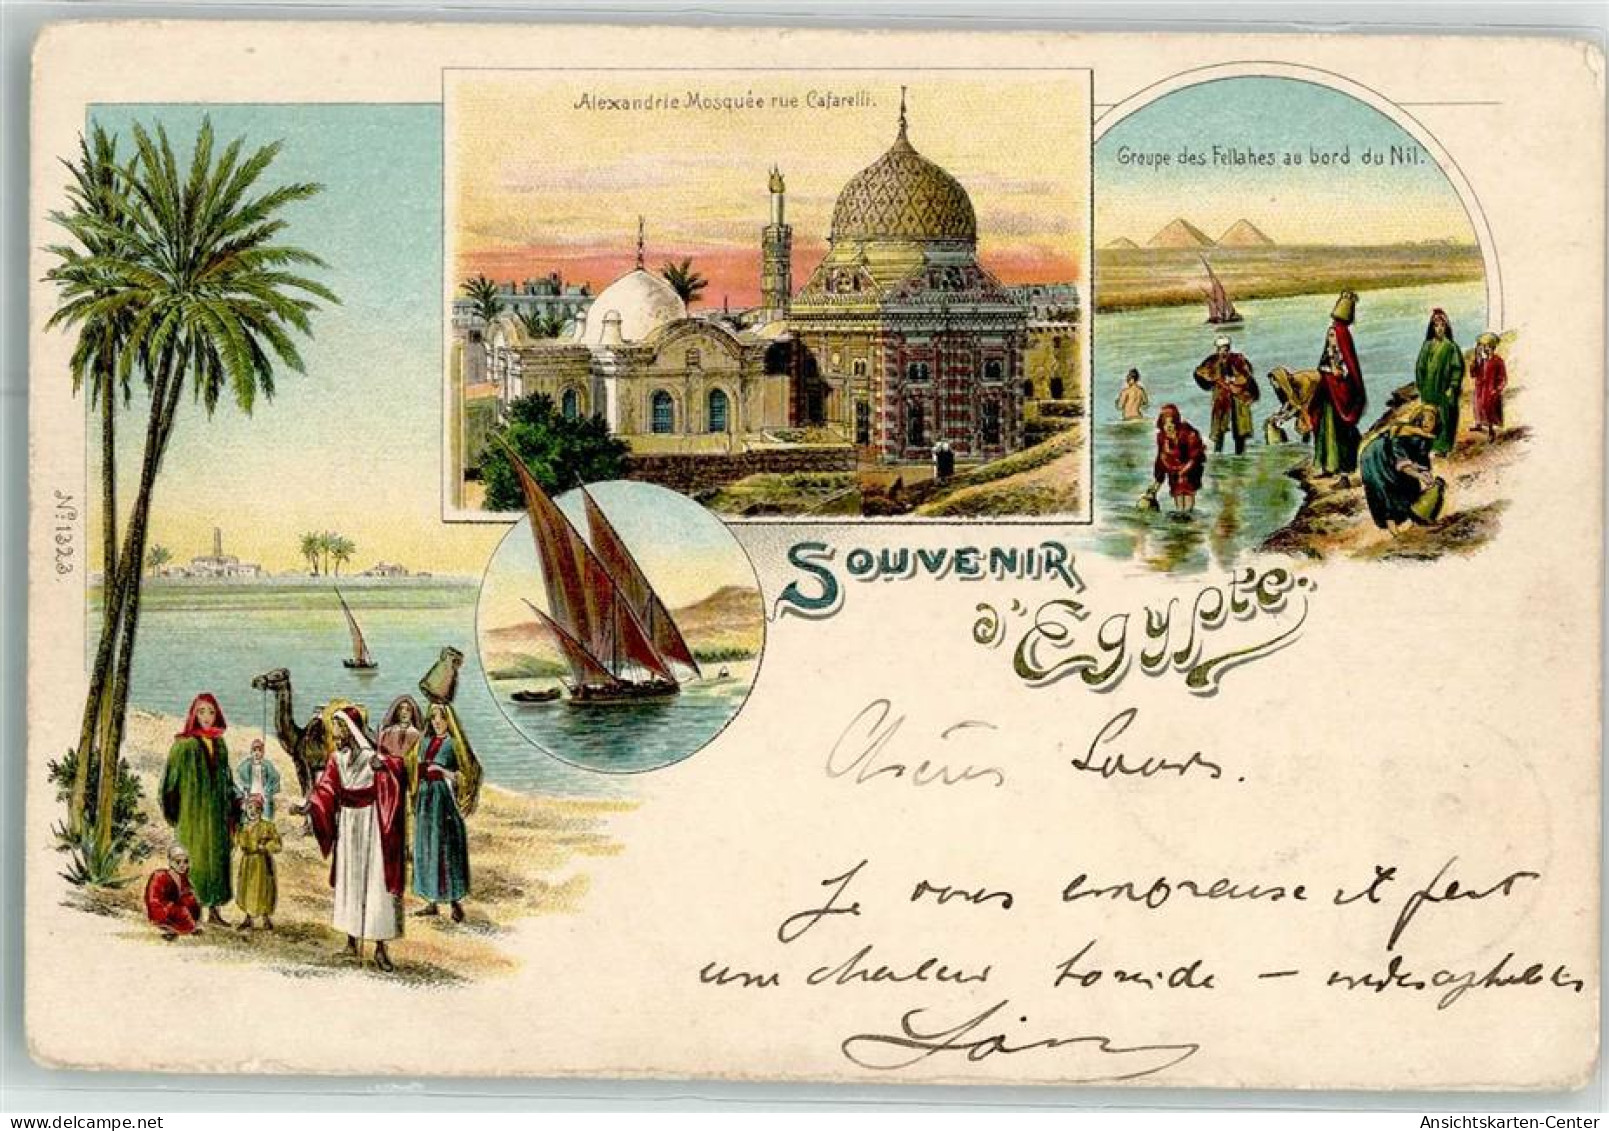 Alexandrie Mosquée rue Cafarelli.
Groupe des Fellahes au bord du Nil.
Nº 1323
SOUVENIR
d'Egypte.
Chères Sœurs.
Je vous embrasse il fait
une chaleur torride –
Ansichtskarten-Center